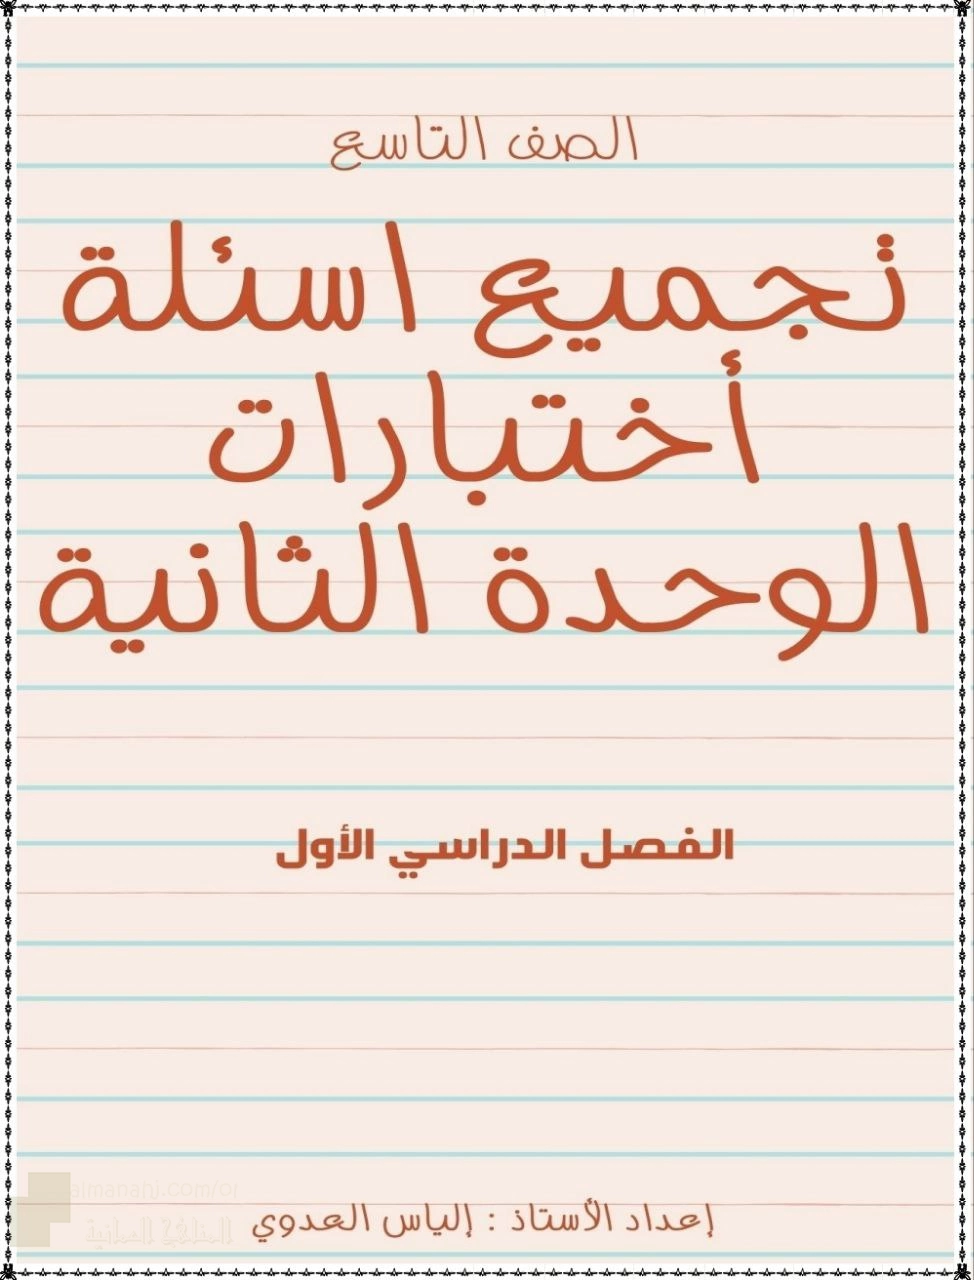 الصف التاسع
تجميع اسئلة
أختبارات
الوحدة الثانية
الفصل الدراسي الأول
almanahj.com/or
المناهج العمانية
إعداد الأستاذ : إلياس العدوي